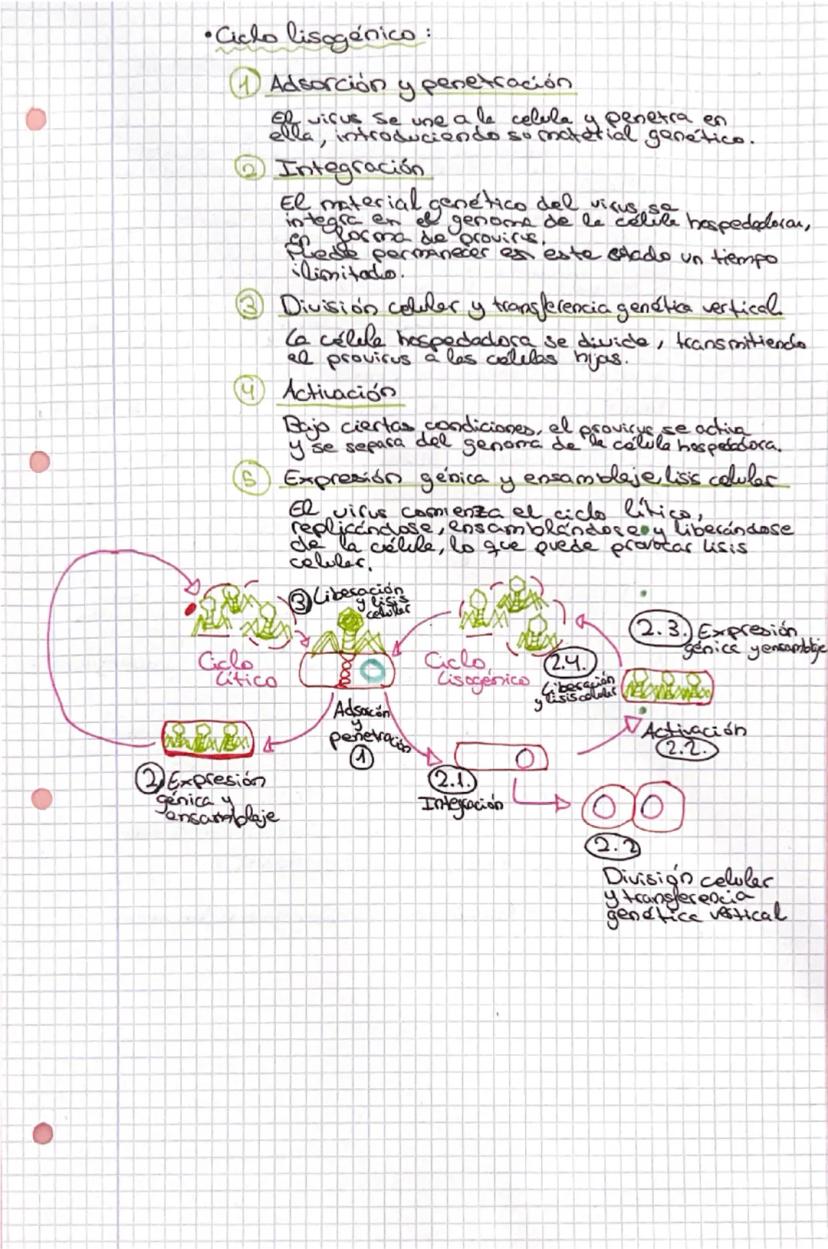 • Ciclo lisogénico:
1 Adsorción y penetración
El virus se une a la celula y penetra en
ella, introduciendo so material genético.
2 Integración
El material genético del virus se
integra en el genoma de la célula hospedadora,
en forma de provirus.
Puede permanecer en este estado un tiempo
ilimitado.
3 División celular y transferencia genética vertical
La célula hospedadora se divide, transmitiendo
el provirus a las celulas hijas.
4 Activación
Bajo ciertas condiciones, el provirus se activa
y se separa del genoma de la célula hospedadora.
5 Expresión génica y ensamblaje lisis celular
El virus comienza el ciclo lítico,
replicándose, ensamblándose y liberándose
de la célula, lo que puede provocar lisis
celular.
3 Liberación
y lisis
celular
Ciclo
Lítico
Ciclo
Lisogénico
2.4.
Liberación
y lisis celular
2.3. Expresión
génica y ensamblaje
Adsorción
y
penetración
1
Activación
2.2.
2 Expresión
génica y
ensamblaje
2.1.
Integración
2.2
División celular
y transferencia
genética vertical